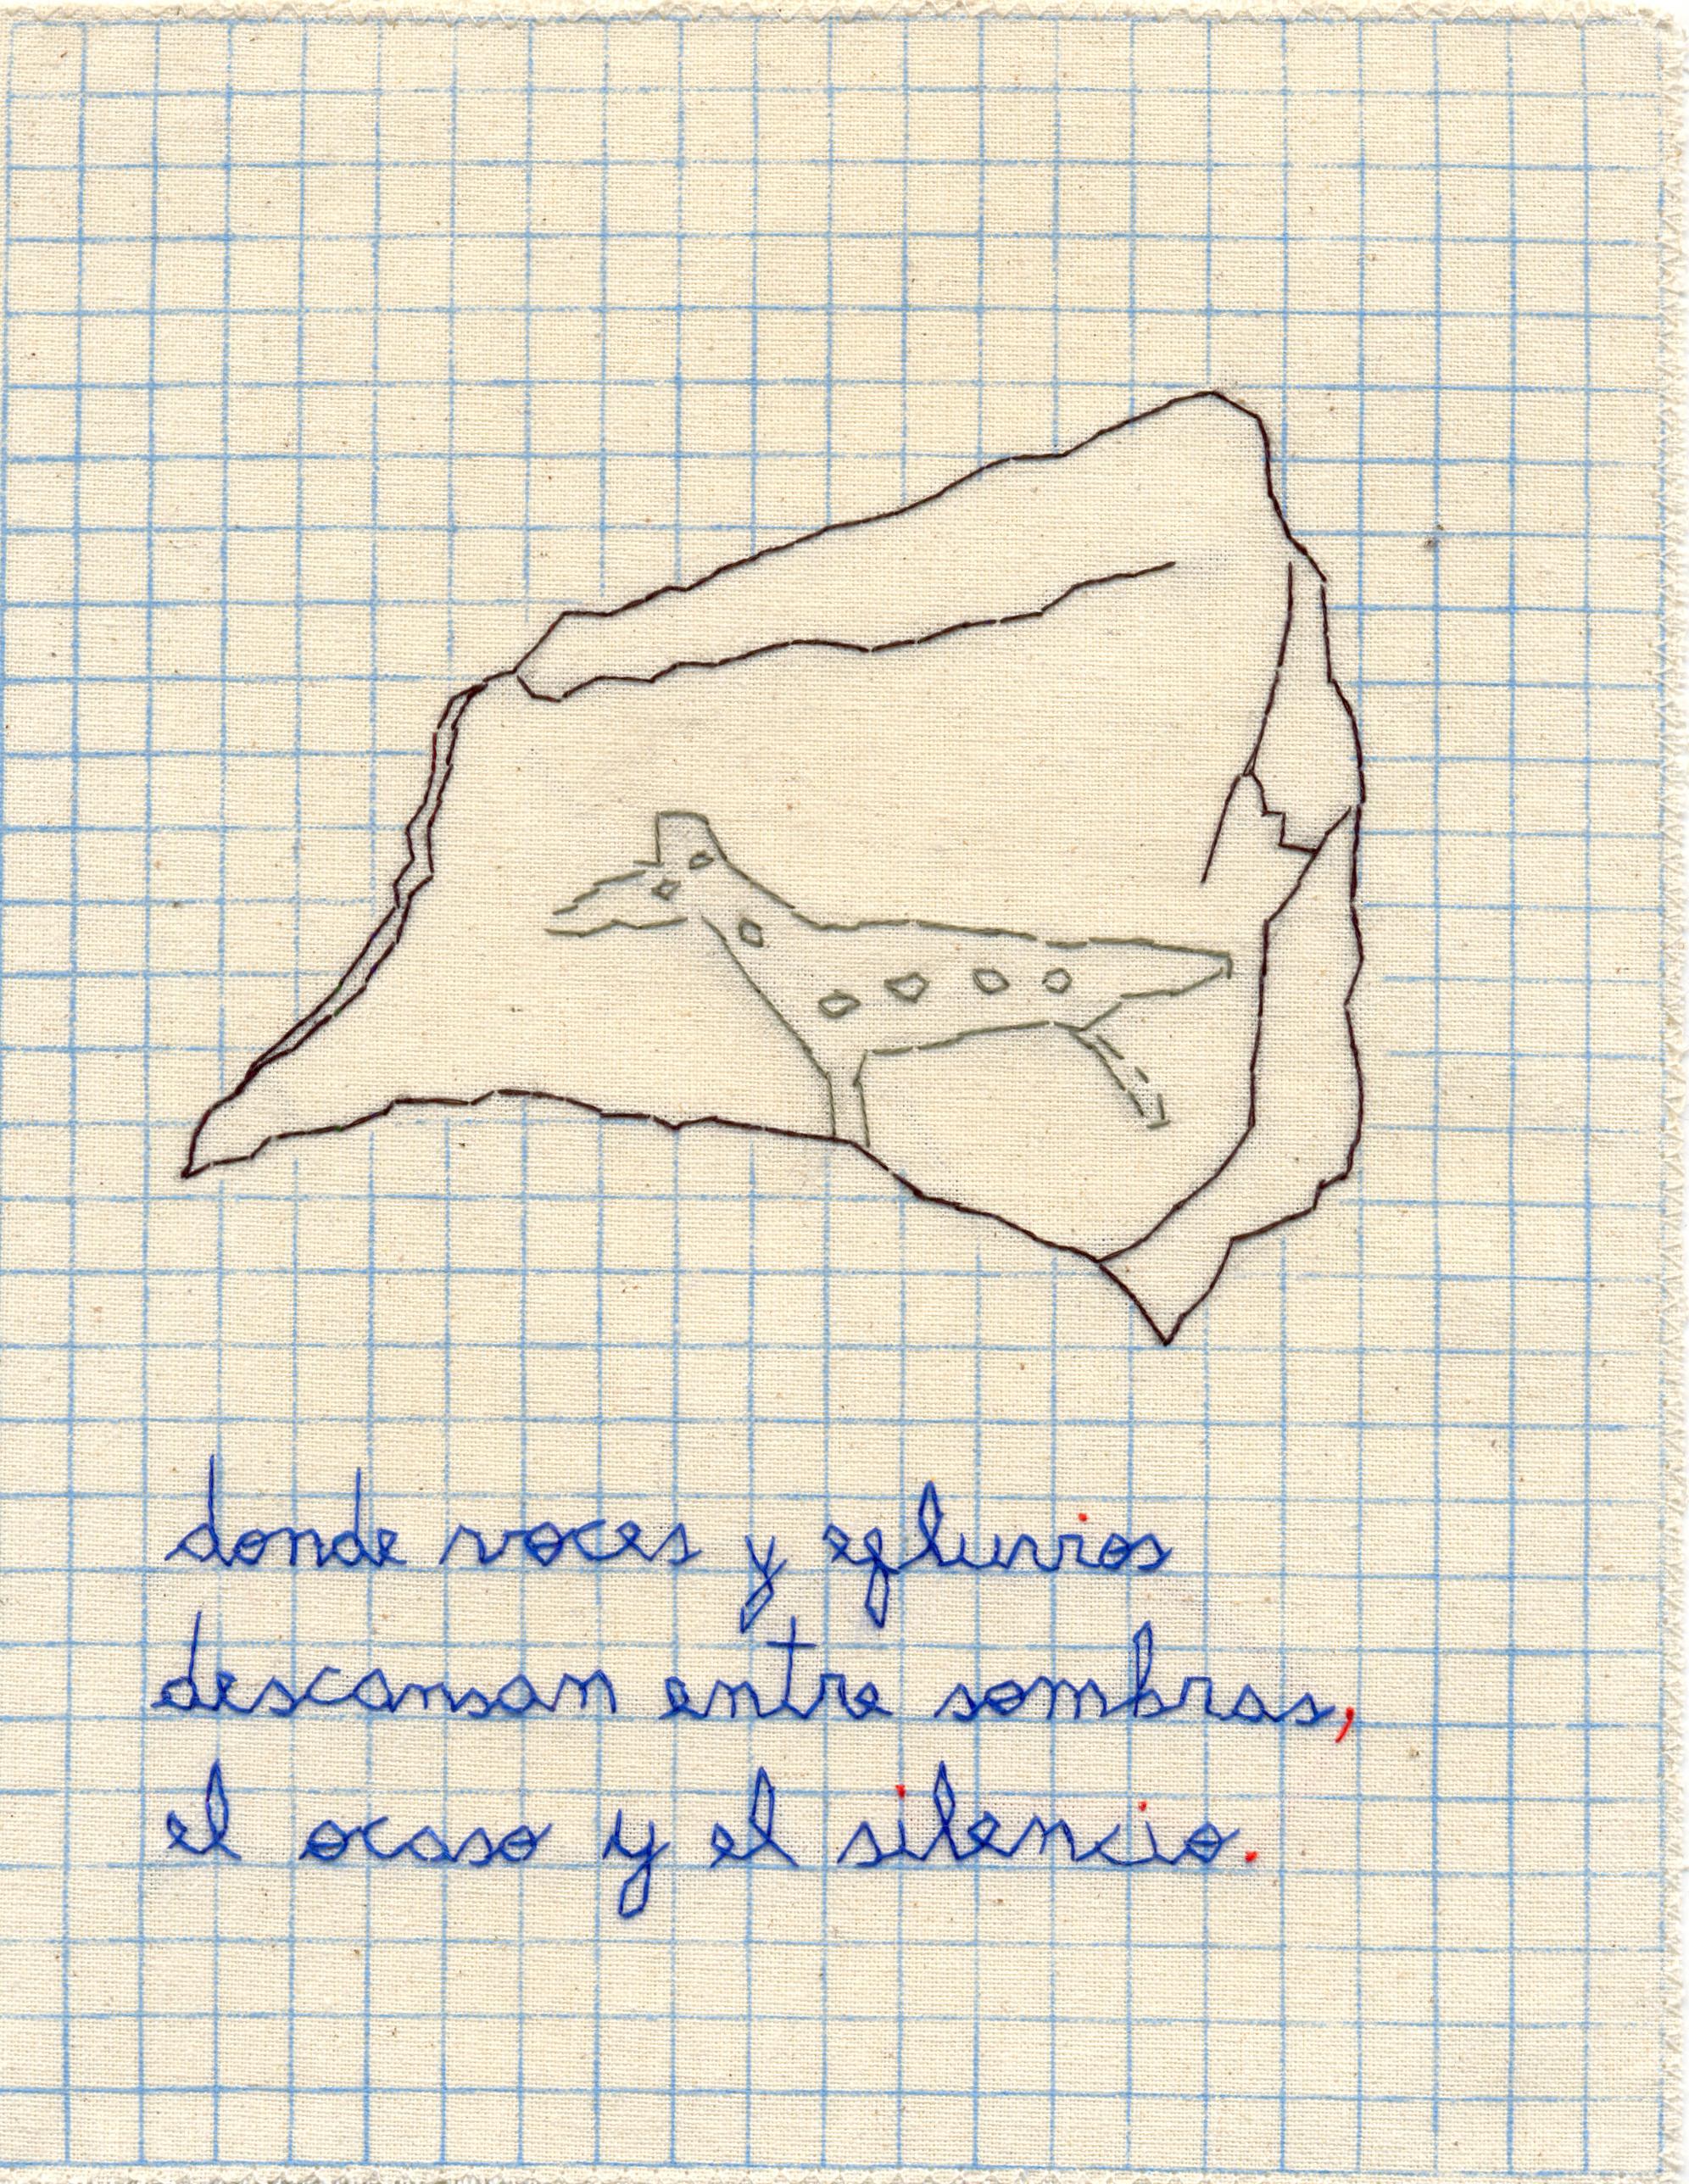 donde voces y efluvios
descansan entre sombras,
el ocaso y el silencio.